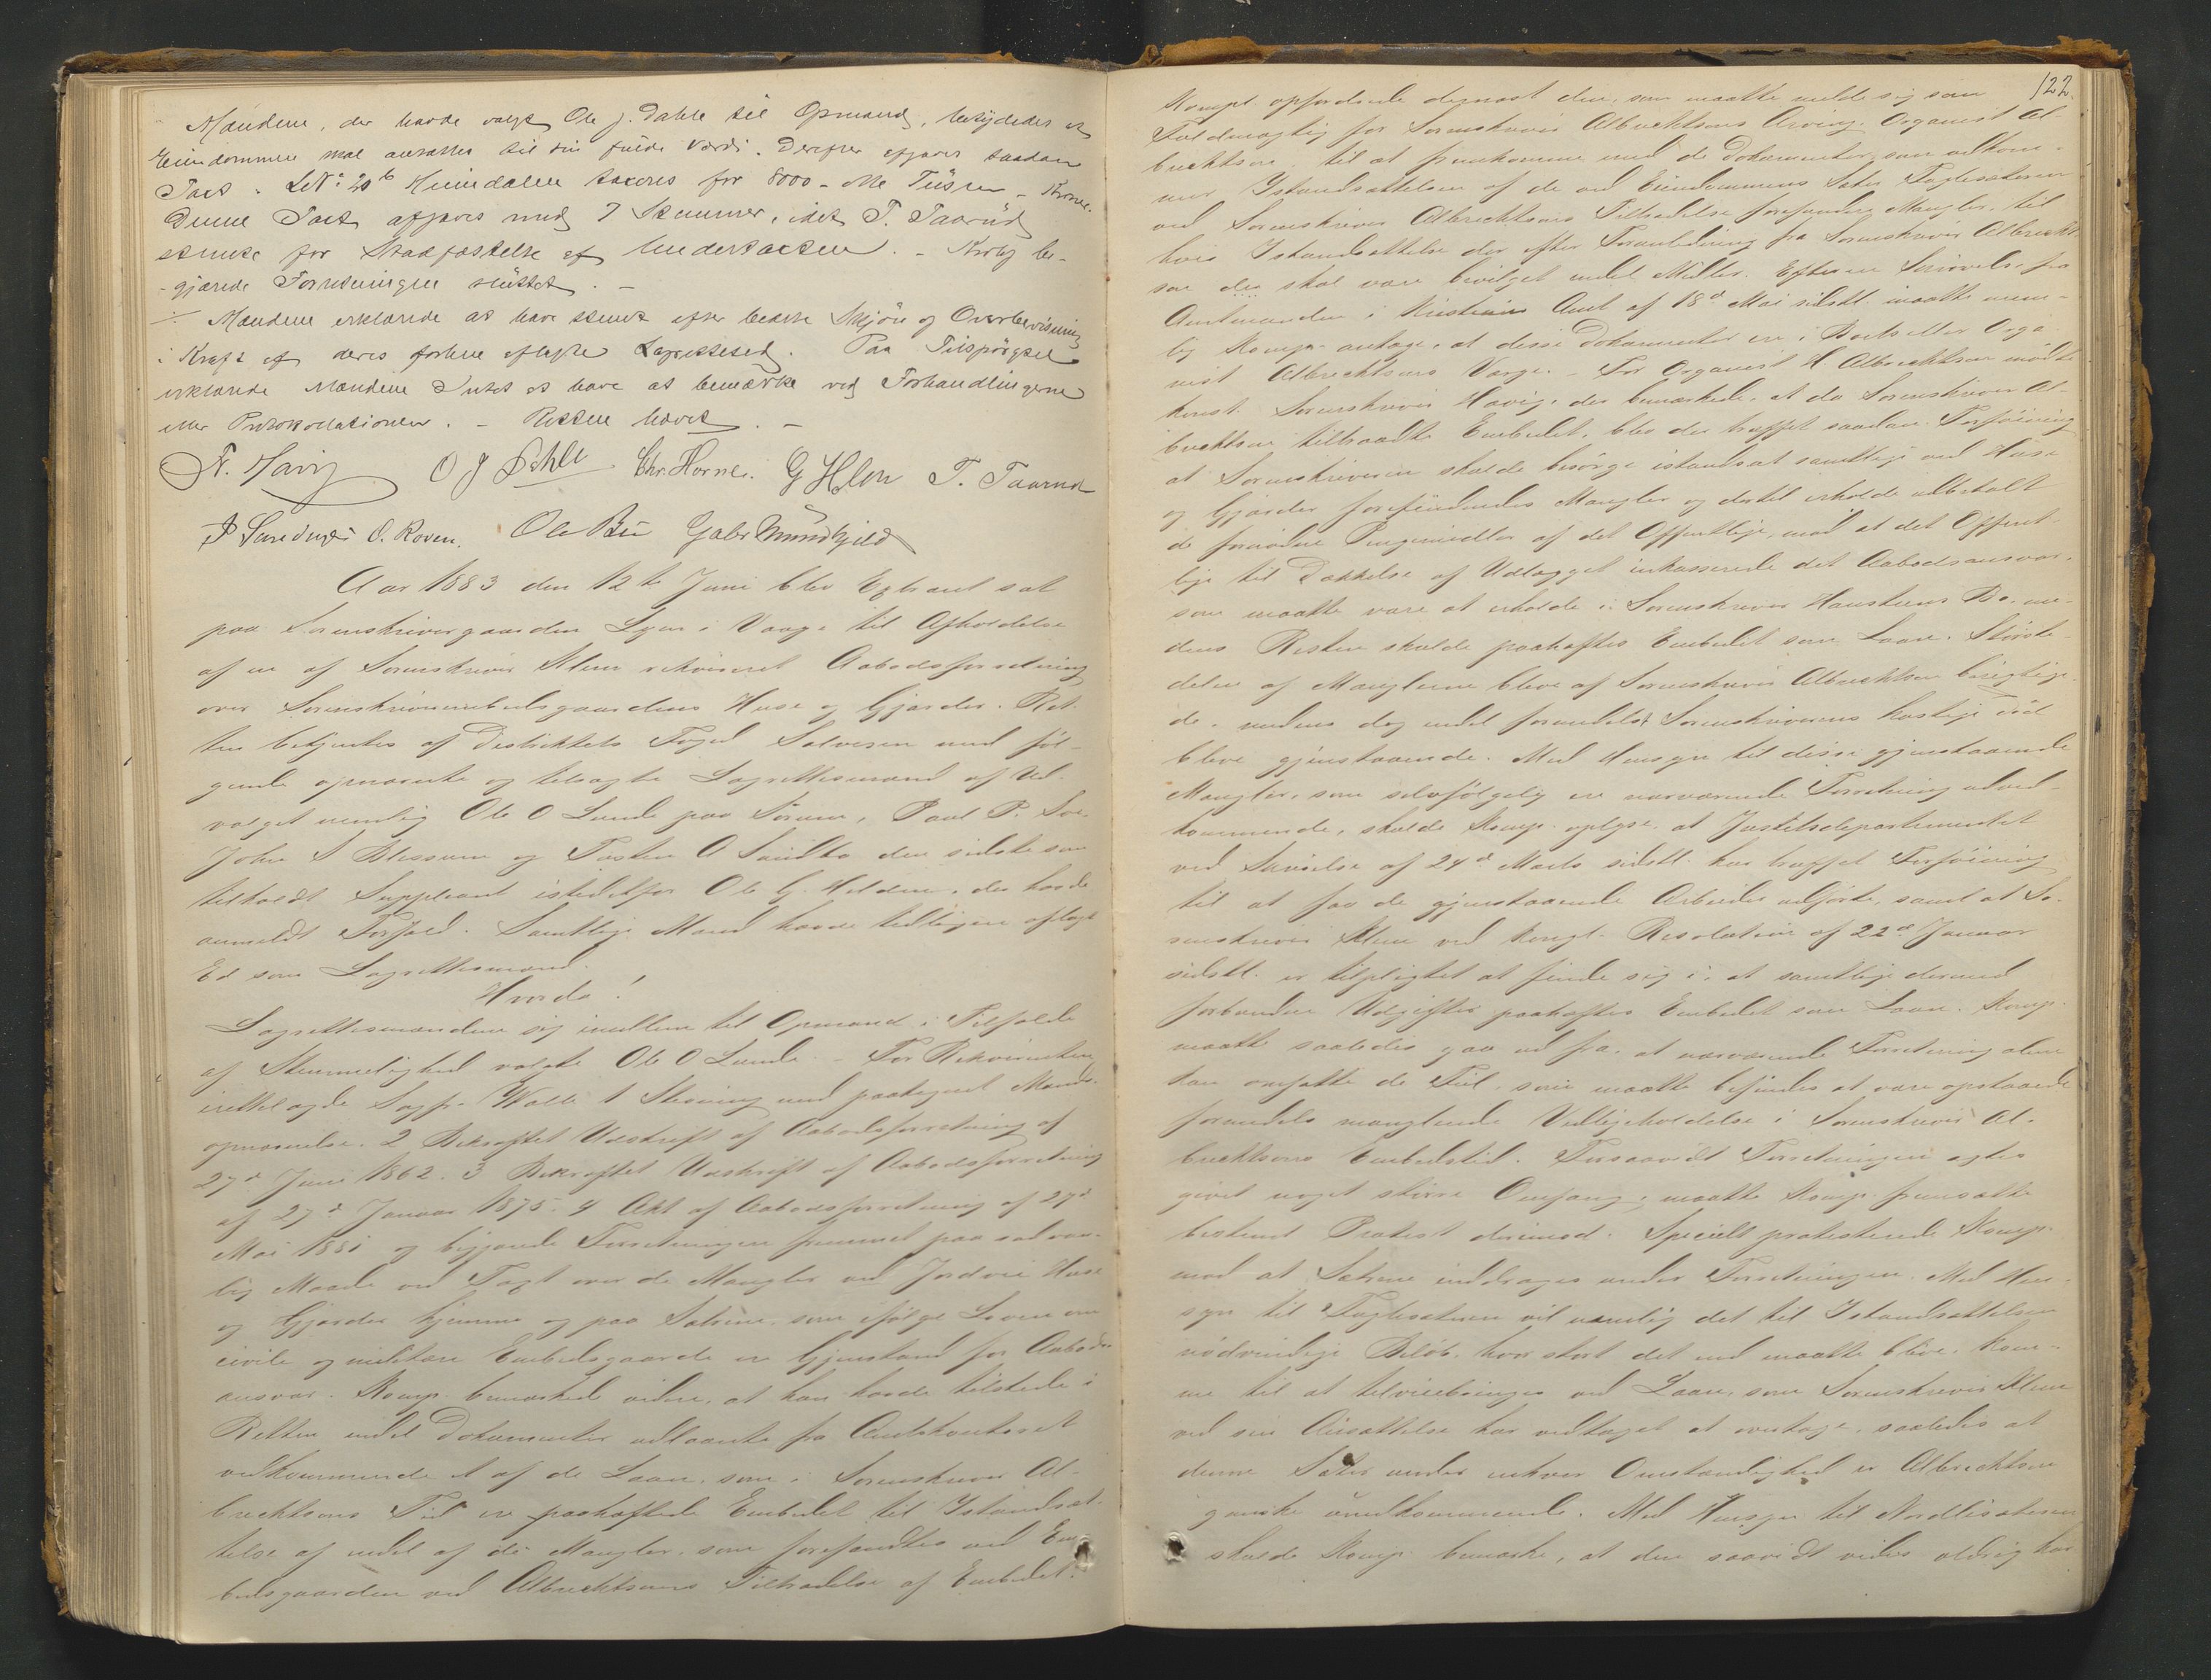 Mændene, der havde valgt Ole J. Dahle til Opmand, betydedes at
Eiendommene skal ansættes til sin fulde Værdi. Derefter afgaves saadan
Taxt. LNo 20b Heimdalen taxeres for 8000 - otte Tusen - Kroner.
Denne Taxt afgaves med 7 Stemmer, idet T. Taarud
stemte for Stadfæstelse af Undertaxten. - Kirby be-
gjærede Forretningen sluttet. -
Mændene erklærede at have stemt efter bedste Skjøn og Overbevisning
i Kraft af deres forhen aflagte Lagrettesed. Paa Tilspørgsel
erklærede Mændene Intet at have at bemærke ved Forhandlingerne
eller Protokollationen. - Retten hævet. -
N. Mavig O J Dahle Chr. Horne. G Hlon T. Taarud
O. Roven. Ole Bu Gabr Mundhjeld
Aar 1883 den 12te Juni blev Extraret sat
paa Sorenskrivergaarden Sgen i Vaage til Afholdelse
af en af Sorenskriver Klem rekvireret Aabodsforretning
over Sorenskriverembedsgaardens Huse og Gjærder. Ret-
ten betjentes af Distriktets Foged Salvesen med føl-
gende opnævnte og tilsagte Lagrettesmænd af Ud-
valget nemlig Ole O Lunde paa Sørum, Paul P. Sve.
John S Blessum og Tosten A Sandbo den sidste som
tilkaldt Suppleant istedetfor Ole G. Holden, der havde
anmeldt Forfald. Samtlige Mænd havde tidligere aflagt
Ed som Lagrettesmænd.
Hvorda!
Lagrettesmændene sig imellem til Opmand i Tilfælde
af Stemmelighed valgte Ole O Lunde. - For Rekvirenten
irettelagde Sagfr. Wolle 1 Stevning med paategnet Mands-
opnævnelse. 2 Bekræftet Udskrift af Aabodsforretning af
27d Juni 1862. 3 Bekræftet Udskrift af Aabodsforretning
af 27d Januar 1875. 4 Akt af Aabodsforretning af 27d
Mai 1881 og begjærede Forretningen fremmet paa sædvan-
lig Maade ved Taxt over de Mangler ved Jordvei Huse
og Gjærder hjemme og paa Sætrene, som ifølge Loven om
civile og militære Embedsgaarde er Gjenstand for Aabods-
ansvar. Komp. bemærked videre, at han havde tilstede i
Retten endel Dokumenter udlaante fra Amtskontoret
vedkommende 1 af de Laan, som i Sorenskriver Al-
brechtsons Tid er paaheftede Embedet til Istandsæt-
telse af endel af de Mangler, som forefandtes ved Em-
bedsgaarden ved Albrechtsons Tiltrædelse af Embedet.
122.
Kompt. opfordrede dernæst den, som maatte melde sig som
Fuldmægtig for Sorenskriver Albrechtsons Arving Organist Al-
brechtson til at fremkomme med de Dokumenter som vedkom-
mer Istandsættelsen af de ved Eiendommens Sæter Fuglesæteren
ved Sorenskriver Albrechtsons Tiltrædelse forefundne Mangler, til
hvis Istandsættelse der efter Foranledning fra Sorenskriver Albrecht-
son der skal være bevilget endel Midler. Efter en Skrivelse fra
Amtmanden i Kristians Amt af 18d Mai sidstl. maatte nem-
lig Komp. antage, at disse Dokumenter er i Boets eller Orga-
nist Albrechtsons Værge. - For Organist H Albrechtson mødte
konst. Sorenskriver Mavig, der bemærkede, at da Sorenskriver Al-
brechtson tiltraadte Embedet, blev der truffet saadan Forføining
at Sorenskriveren skulde besørge istandsat samtlige ved Huse
og Gjærder forefindendes Mangler og dertil erholde udbetalt
de fornødne Pengemidler af det Offentlige, mod at det Offent-
lige til Dækkelse af Udlægget inkasserede det Aabodsansvar,
som maatte være at erholde i Sorenskriver Hansteens Bo, me-
dens Resten skulde paaheftes Embedet som Laan. Største-
delen af Manglerne bleve af Sorenskriver Albrechtson berigtige-
de, medens dog endel formedelst Sorenskriverens hastige Død
bleve gjenstaaende. Med Hensyn til disse gjenstaaende
Mangler, som selvfølgelig er nærværende Forretning uved-
kommende, skulde Komp. oplyse at Justitsdepartementet
ved Skrivelse af 24d Marts sidstl. har truffet Forføining
til at faa de gjenstaaende Arbeider udførte, samt at So-
renskriver Klem ved kongl. Resolution af 22d Januar
sidstl. er tilpligtet at finde sig i, at samtlige dermed
forbundne Udgifter paaheftes Embedet som Laan. Komp.
maatte saaledes gaa ud fra, at nærværende Forretning alene
kan omfatte de Feil, som maatte befindes at være opstaaede
formedels manglende Vedligeholdelse i Sorenskriver Al-
brechtsons Embedstid. Forsaavidt Forretningen agtes
givet noget større Omfang, maatte Komp. fremsætte
bestemt Protest derimod. Specielt protesterede Komp.
mod at Sætrene inddrages under Forretningen. Med Hen-
syn til Fuglesæteren vil nemlig det til Istandsættelsen
nødvendige Beløb, hvor stort det end maatte blive, kom-
me til at tilveiebringes ved Laan, som Sorenskriver Klem
ved sin Ansættelse har vedtaget at overtage, saaledes at
denne Sæter under enhver Omstændighed er Albrechtson
ganske uvedkommende. Med Hensyn til Nordlisæteren
skulde Komp. bemærke, at den saavidt vides aldrig har